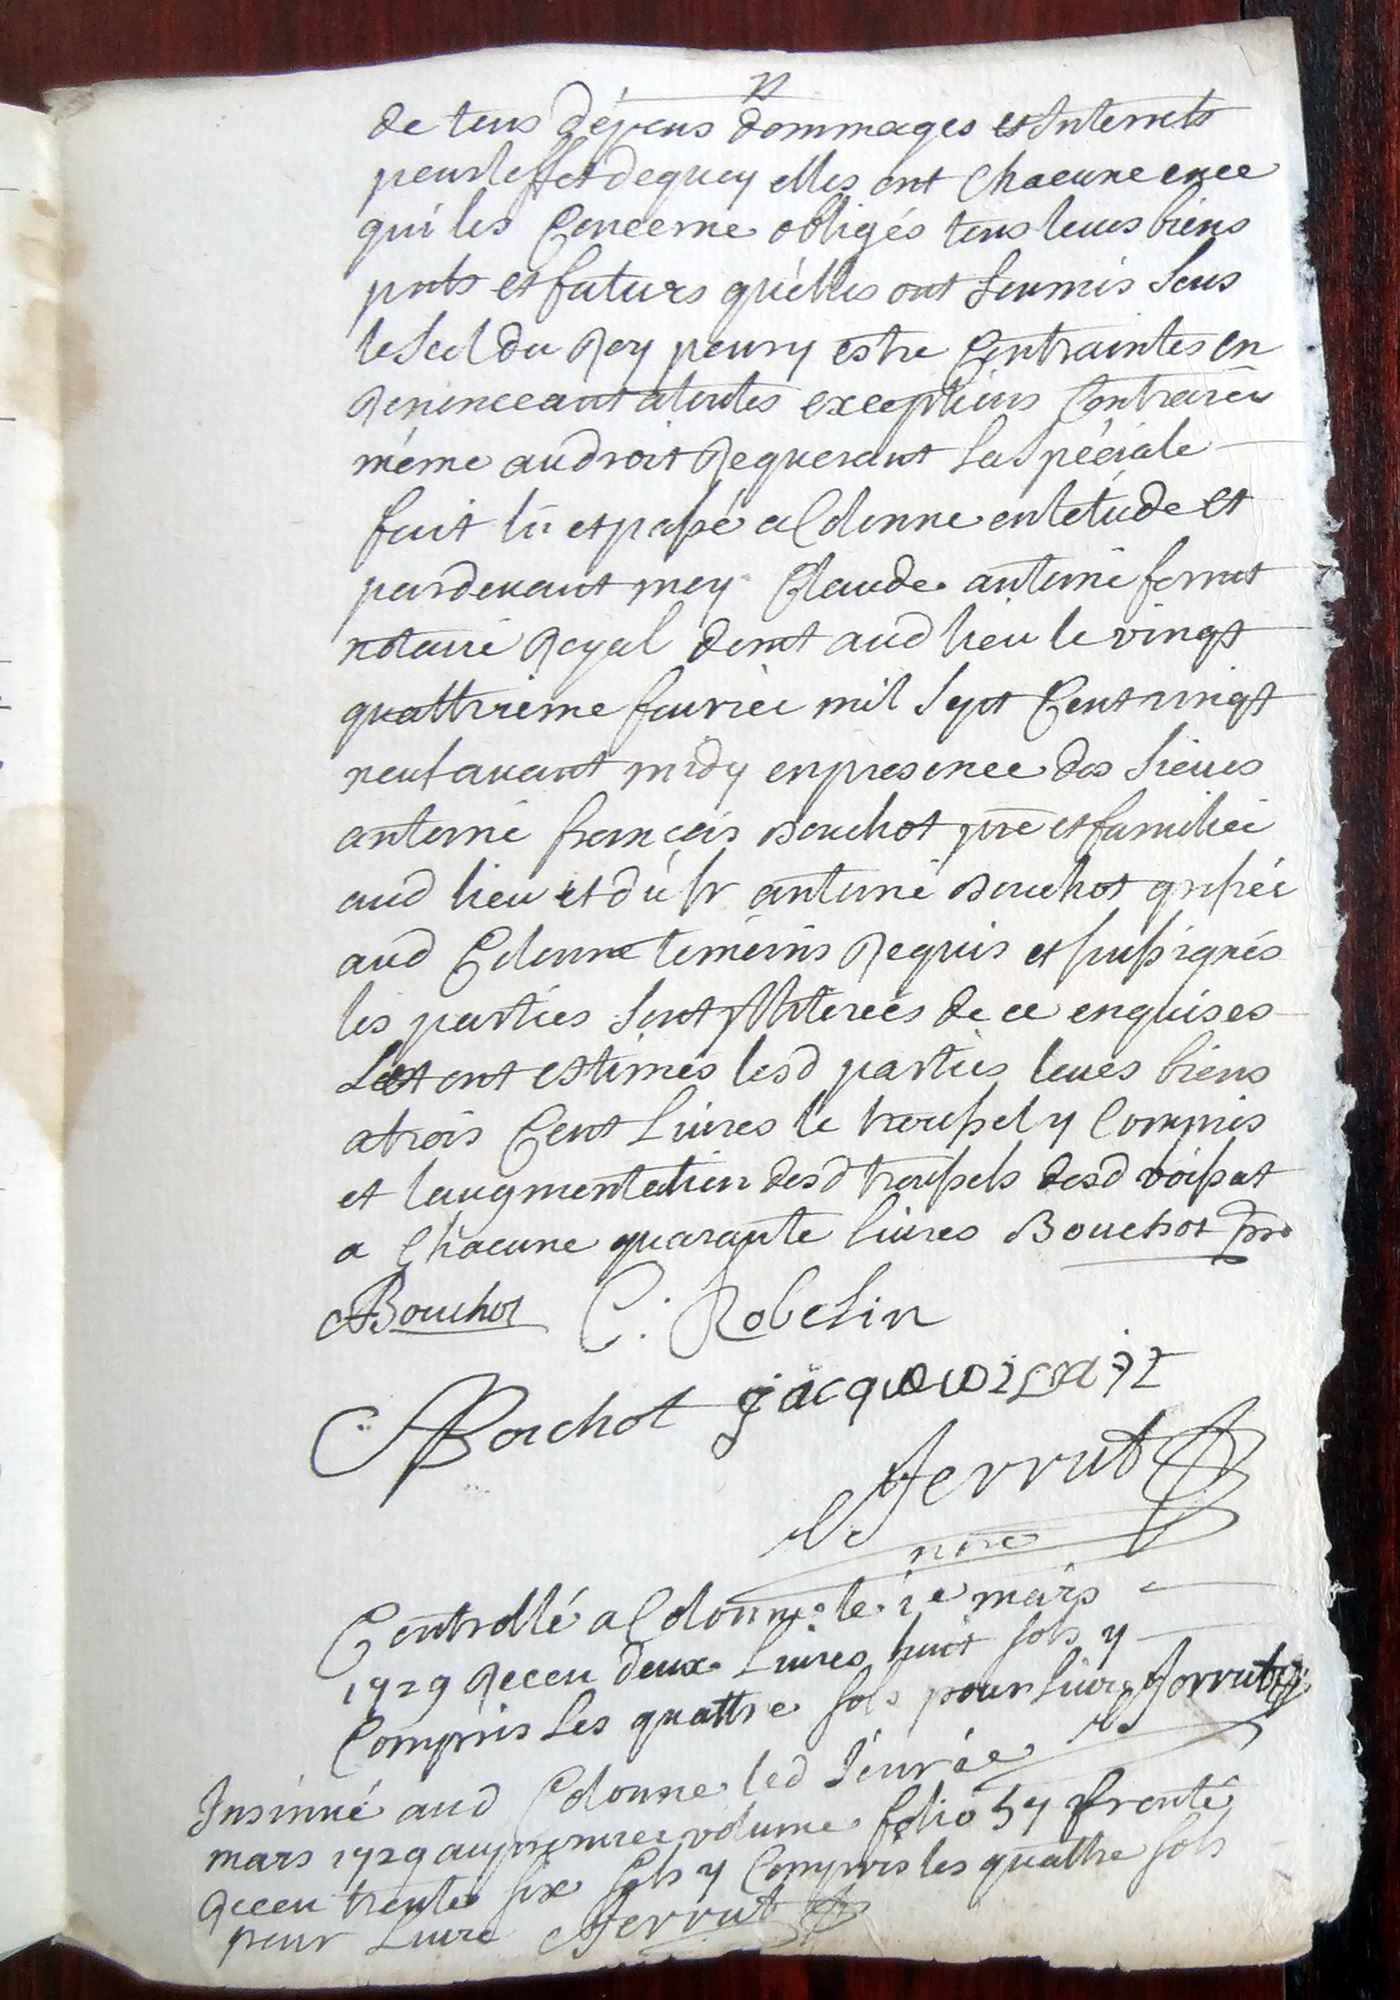 de tous dépens dommages et Interrets
pour leffet dequoy elles ont Chacune en ce
qui les Concerne obligés tous leurs biens
pnts et futurs quélles ont soumis sous
le scel du Roy pour y estre Contraintes en
Renonceant a toutes exceptions Contraires
méme au droit Requerant la spéciale
fait lû et passé a Colonne en létude et
pardevant moy Claude antoine ferrut
notaire Royal demt aud lieu le vingt
quattrieme fevrier mil sept Cent vingt
neuf avant midy en presence des sieurs
antoine françois Bouchot pre et familier
aud lieu et du sr antoine Bouchot greffier
aud Colonne temoins Requis et soussignés
les parties sont Illiterées de ce enquises
et ont estimés lesd parties leurs biens
a trois Cent Livres le troussel y Compris
et laugmentation desd troussels desd
a Chacune quarante livres Bouchot pre
A Bouchot C. Robelin
Bouchot jacque
Ferrut
nore
Controllé a Colonne le 1e mars
1729 Receu deux Livres huit sols y
Compris Les quattre sols pour Livre Ferrut
Insinué aud Colonne led Jour 1er
mars 1729 au premier volume folio 57
Receu trente six sols y Compris les quattre sols
pour Livre Ferrut